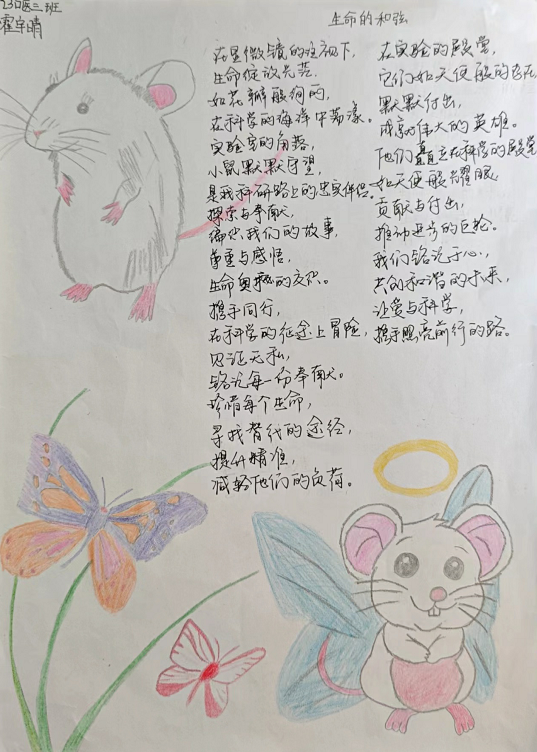 23口医三班
霍宇晴
生命的和弦
在显微镜的注视下，
生命绽放光芒，
如花瓣般绚烂，
在科学的海洋中荡漾。
实验室的角落，
小鼠默默守望，
是我科研路上的忠实伴侣。
探索与奉献，
编织我们的故事，
尊重与感悟，
生命奥秘的交织。
携手同行，
在科学的征途上冒险，
见证无私，
铭记每一份奉献。
珍惜每个生命，
寻找替代的途经，
提升精准，
减轻他们的负荷。
在实验的殿堂，
它们如天使般的存在，
默默付出，
成就伟大的英雄。
他们矗立在科学的殿堂
如天使般耀眼，
贡献与付出，
推动进步的巨轮。
我们铭记于心，
共创和谐的未来，
让爱与科学，
携手照亮前行的路。